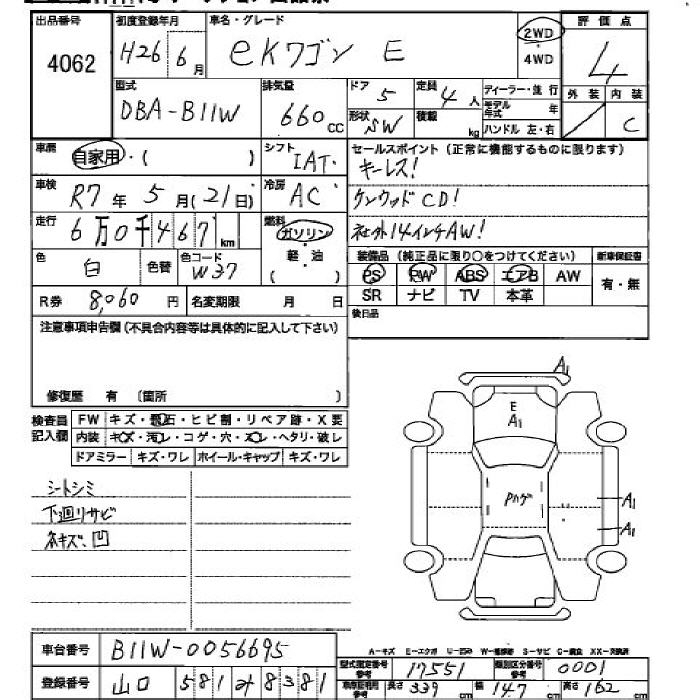 出品番号 初度登録年月 車名・グレード 評価点
4062 H26年6月 eKワゴン E 2WD 4WD 4
型式 排気量 ドア 定員 ディーラー・並行 外装 内装
DBA-B11W 660cc 5 4人 モデル年式 年
形状 SW 積載 kg ハンドル 左・右 C
車歴 自家用・( ) シフト IAT. セールスポイント(正常に機能するものに限ります)
キーレス!
車検 R7年5月(21日) 冷房 AC ケンウッドCD!
走行 6万0千467km 燃料 ガソリン 軽油 ( ) 社外14インチAW!
色 白 色替 色コード W37 装備品(純正品に限り○をつけてください) 新車保証書
PS PW ABS エアB AW 有・無
R券 8,060円 名変期限 月 日 SR ナビ TV 本革
注意事項申告欄(不具合内容等は具体的に記入して下さい) 後日品
修復歴 有 〔箇所 〕
検査員記入欄 FW キズ・飛石・ヒビ割・リペア跡・X要
内装 キズ・汚レ・コゲ・穴・スレ・ヘタリ・破レ
ドアミラー キズ・ワレ ホイール・キャップ キズ・ワレ
A1
E
A1
Pハゲ
A1
A1
シートシミ
下廻リサビ
キズ、凹
A-キズ E-エクボ U-凹み S-サビ C-腐食
車台番号 B11W-0056695
型式指定番号 参考 17551 類別区分番号 参考 0001
登録番号 山口 581 み 8381
長さ 339cm 幅 147cm 高さ 162cm